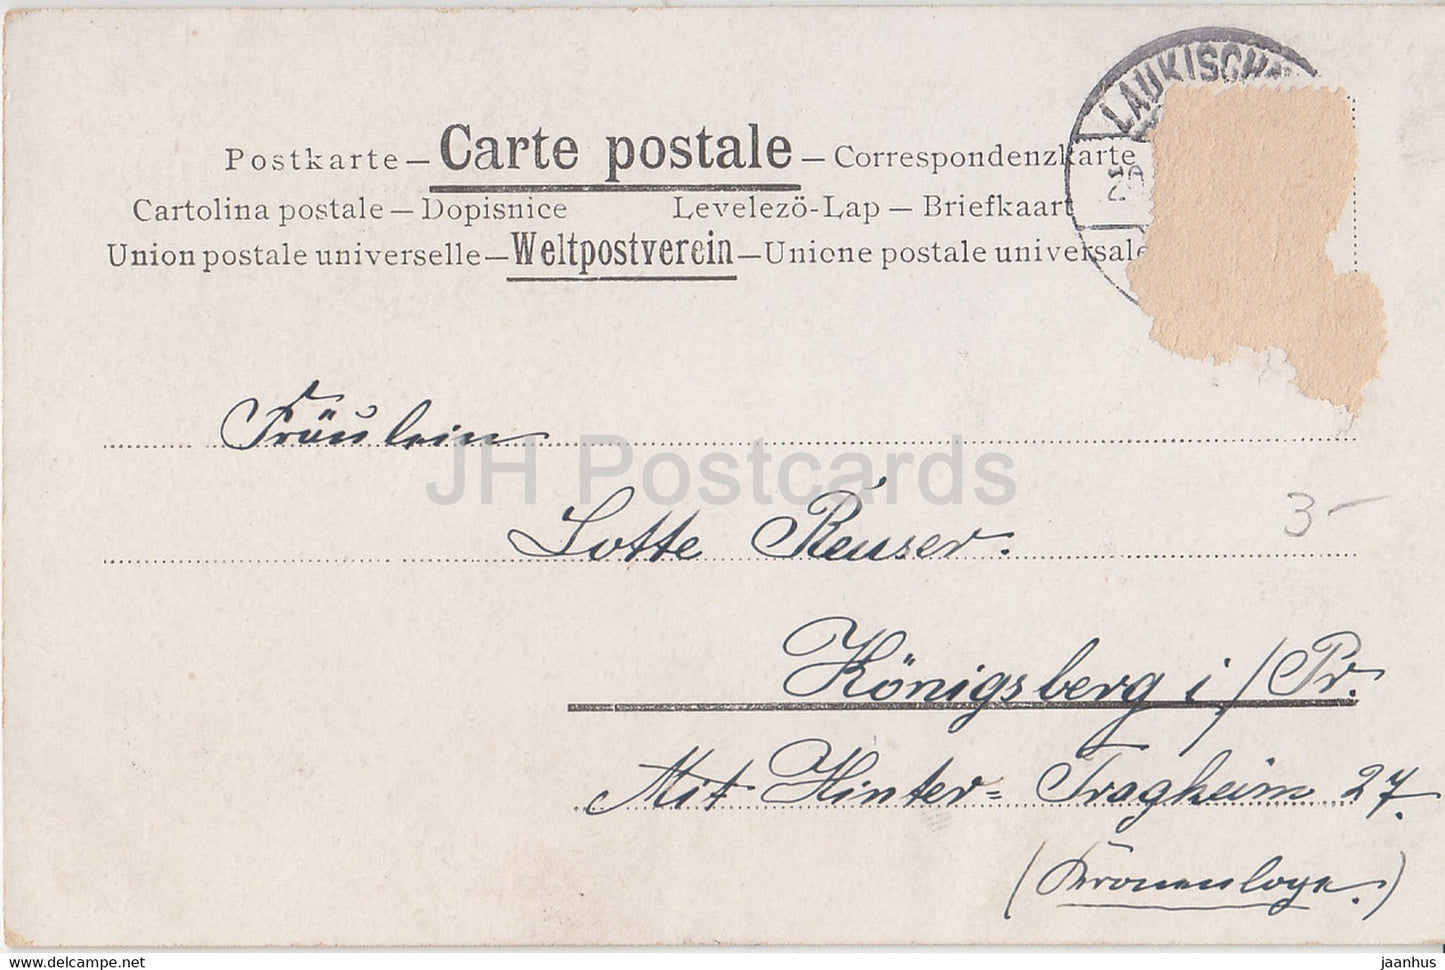 LAUKISCH
Postkarte – Carte postale – Correspondenzkarte
Cartolina postale – Dopisnice Levelezö-Lap – Briefkaart
Union postale universelle – Weltpostverein – Unione postale universale
Fräulein
JH Postcards
Lotte Reuser.
3-
Königsberg i/Pr.
Mit Hinter= Tragheim 27.
(Kronenloge.)
www.delcampe.net
jaanhus